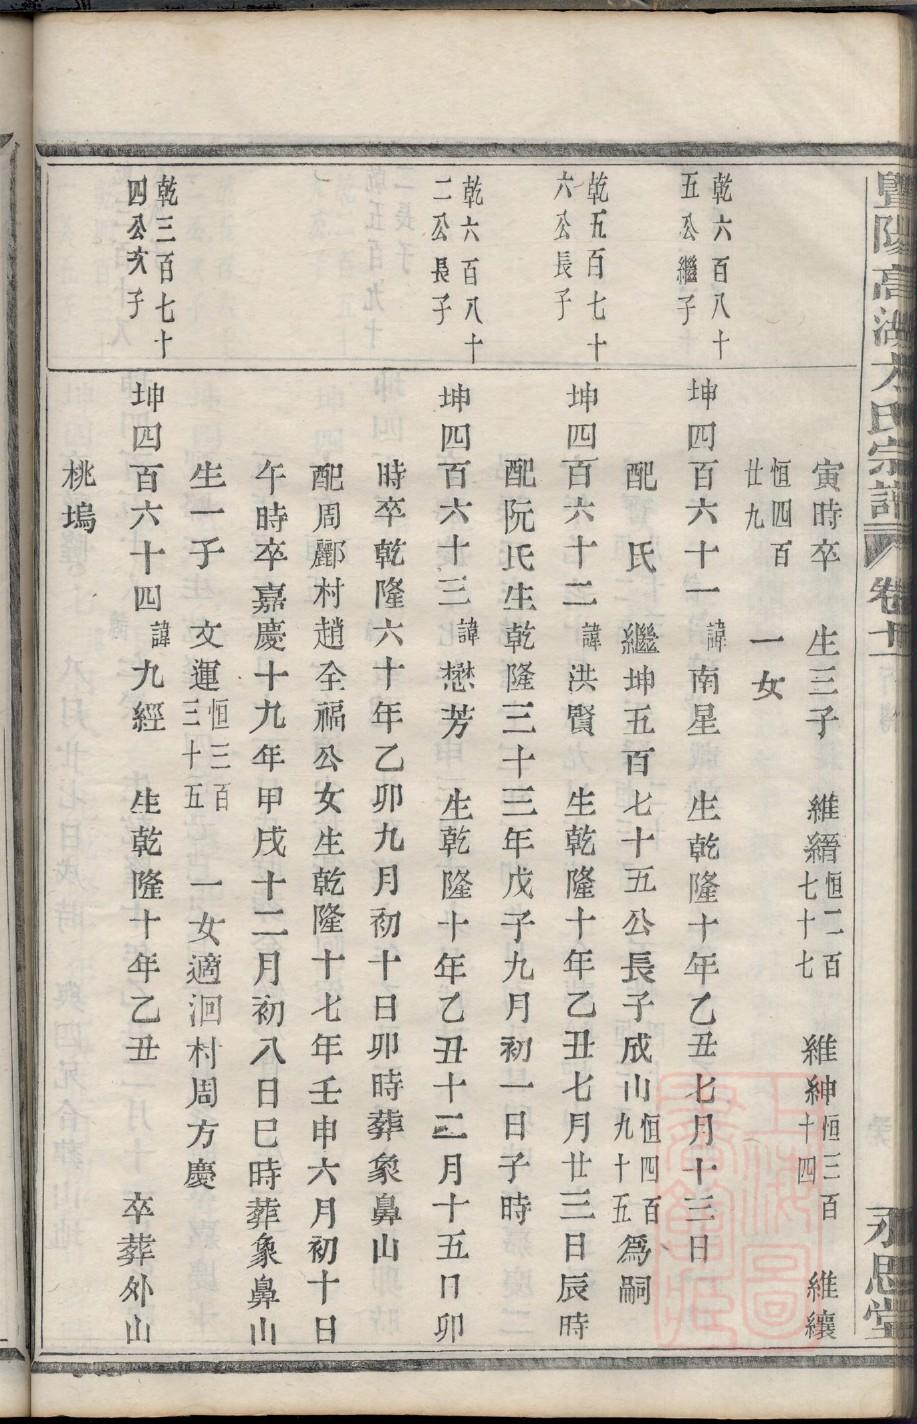 暨陽高湖方氏宗譜 卷十二 永思堂
寅時卒 生三子 維縉恒二百七十七 維紳恒三百十四 維纕
恒四百廿九 一女
乾六百八十五公繼子
坤四百六十一諱南星 生乾隆十年乙丑七月十三日
配 氏 繼坤五百七十五公長子成山恒四百九十五為嗣
乾五百七十六公長子
坤四百六十二諱洪賢 生乾隆十年乙丑七月廿三日辰時
配阮氏生乾隆三十三年戊子九月初一日子時
乾六百八十二公長子
坤四百六十三諱懋芳 生乾隆十年乙丑十二月十五日卯
時卒乾隆六十年乙卯九月初十日卯時葬象鼻山
配周酈村趙全福公女生乾隆十七年壬申六月初十日
午時卒嘉慶十九年甲戌十二月初八日巳時葬象鼻山
生一子 文運恒三百三十五 一女適泗村周方慶
乾三百七十四公次子
坤四百六十四諱九經 生乾隆十年乙丑 卒葬外山
桃塢